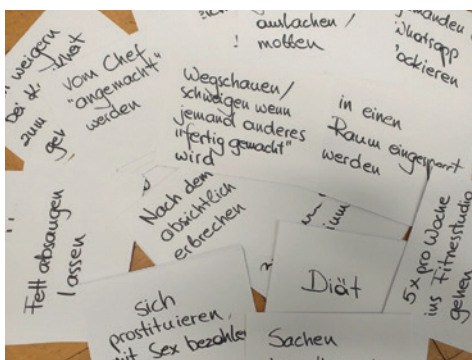 auslachen/
! mobben
Whatsapp
weigern
bei d.
zum
vom Chef
"angemacht"
werden
Wegschauen/
schweigen wenn
jemand anderes
"fertig gemacht"
wird
in einen
Raum eingesperrt
werden
Fett absaugen
lassen
Nach dem
absichtlich
erbrechen
Diät
5x pro Woche
ins Fitnesstudio
gehen
Sich
prostituieren,
mit Sex bezahlen
Sachen